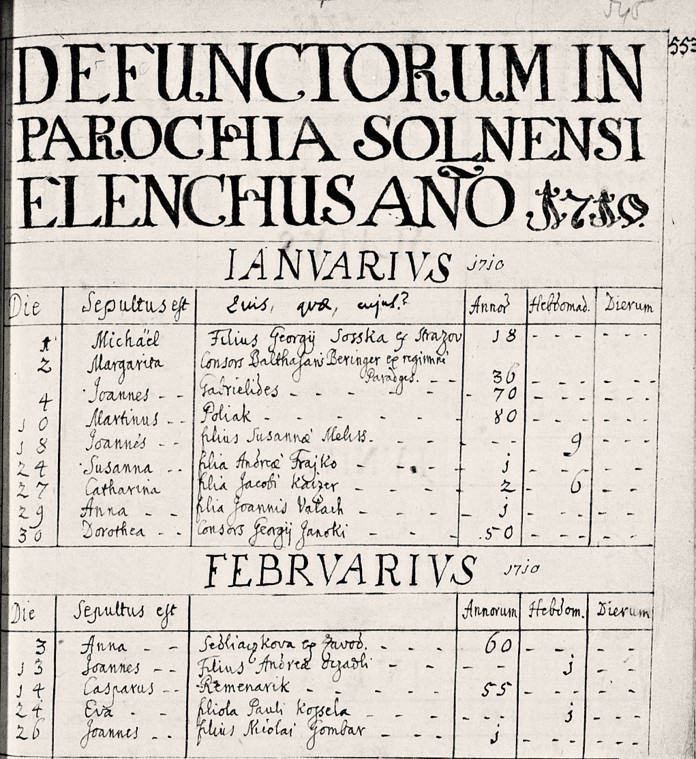 553
DEFUNCTORUM IN
PAROCHIA SOLNENSI
ELENCHUS AÑO 1710.
IANVARIVS 1710
Die Sepultus est Quis, quæ, cujus? Annor Hebdomad. Dierum
1 Michäel Filius Georgij Sosska ex Strazov 18 - - - - - -
2 Margarita Consors Balthasari Beringer ex regimine
Paradges. - - 36 - - - - - -
4 Joannes - - Gabrielides - - - - - 70 - - - - - -
10 Martinus - - Poliak - - - - - - 80 - - - - - -
18 Joannes - - filius Susannæ Meliss. - - - - - - 9 - - -
24 Susanna - - filia Andreæ Frajko - - - j - - - - - -
27 Catharina filia Jacobi Kaizer - - - - 2 - 6 - - -
29 Anna - - filia Joannis Valach - - - j - - - - - -
30 Dorothea - - Consors Georgij Janoki - - - 50 - - - - - -
FEBRVARIVS 1710
Die Sepultus est Annorum Hebdom. Dierum
3 Anna - - ex Zavod. - - - - 60 - - - - - -
13 Joannes - - Filius Andreæ - - - - - - j - - -
14 Casparus - - Remenarik - - - - - 55 - - - - - -
24 Eva - - filiola Pauli Kossela - - - - - - j - - -
26 Joannes - - filius Nicolai Gombar - - - j - - - - - -